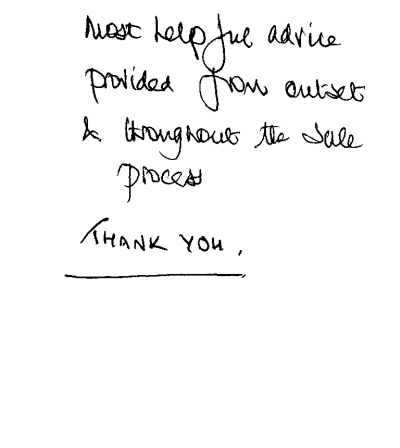 Most helpful advice
provided from outset
& throughout the sale
process
THANK YOU.